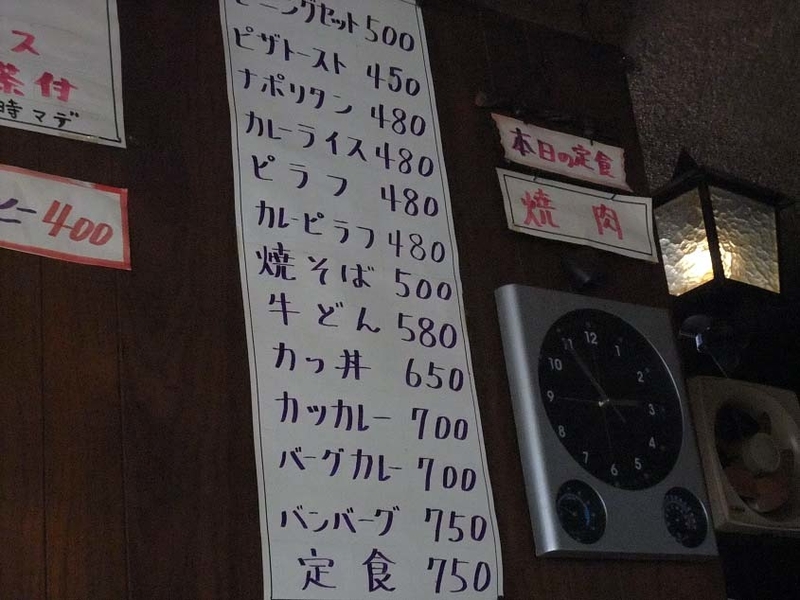 ス
茶付
時マデ
ヒー400
ーニングセット500
ピザトースト 450
ナポリタン 480
カレーライス 480
ピラフ 480
カレーピラフ 480
焼そば 500
牛どん 580
カツ丼 650
カツカレー 700
バーグカレー 700
バンバーグ 750
定食 750
本日の定食
焼肉
12
1
2
3
4
5
6
7
8
9
10
11